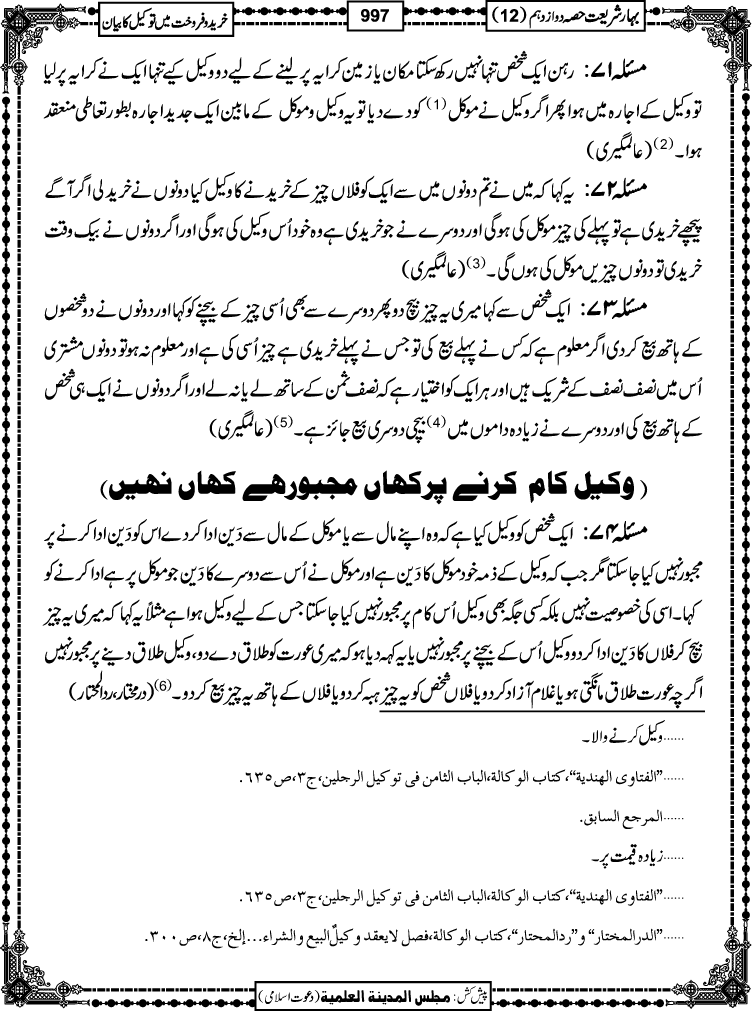 بہارِ شریعت حصہ دوازدہم (12)
997
خرید و فروخت میں توکیل کا بیان
مسئلہ ۷۱: رہن ایک شخص تنہا نہیں رکھ سکتا مکان یا زمین کرایہ پر لینے کے لیے دو وکیل کیے تنہا ایک نے کرایہ پر لیا
تو وکیل کے اجارہ میں ہوا پھر اگر وکیل نے موکل (1) کو دے دیا تو یہ وکیل و موکل کے مابین ایک جدید اجارہ بطور تعاطی منعقد
ہوا۔(2) (عالمگیری)
مسئلہ ۷۲: یہ کہا کہ میں نے تم دونوں میں سے ایک کو فلاں چیز کے خریدنے کا وکیل کیا دونوں نے خرید لی اگر آگے
پیچھے خریدی ہے تو پہلے کی چیز موکل کی ہوگی اور دوسرے نے جو خریدی ہے وہ خود اُس وکیل کی ہوگی اور اگر دونوں نے بیک وقت
خریدی تو دونوں چیزیں موکل کی ہوں گی۔(3) (عالمگیری)
مسئلہ ۷۳: ایک شخص سے کہا میری یہ چیز بیچ دو پھر دوسرے سے بھی اُسی چیز کے بیچنے کو کہا اور دونوں نے دو شخصوں
کے ہاتھ بیع کردی اگر معلوم ہے کہ کس نے پہلے بیع کی تو جس نے پہلے خریدی ہے چیز اُسی کی ہے اور معلوم نہ ہو تو دونوں مشتری
اُس میں نصف نصف کے شریک ہیں اور ہر ایک کو اختیار ہے کہ نصف ثمن کے ساتھ لے یا نہ لے اور اگر دونوں نے ایک ہی شخص
کے ہاتھ بیع کی اور دوسرے نے زیادہ داموں میں (4) بیچی دوسری بیع جائز ہے۔(5) (عالمگیری)
( وکیل کام کرنے پر کہاں مجبور ہے کہاں نہیں)
مسئلہ ۷۴: ایک شخص کو وکیل کیا ہے کہ وہ اپنے مال سے یا موکل کے مال سے دَین ادا کردے اس کو دَین ادا کرنے پر
مجبور نہیں کیا جاسکتا مگر جب کہ وکیل کے ذمہ خود موکل کا دَین ہے اور موکل نے اُس سے دوسرے کا دَین جو موکل پر ہے ادا کرنے کو
کہا۔ اسی کی خصوصیت نہیں بلکہ کسی جگہ بھی وکیل اُس کام پر مجبور نہیں کیا جاسکتا جس کے لیے وکیل ہوا ہے مثلاً یہ کہا کہ میری یہ چیز
بیچ کر فلاں کا دَین ادا کردو وکیل اُس کے بیچنے پر مجبور نہیں یا یہ کہہ دیا ہو کہ میری عورت کو طلاق دے دو، وکیل طلاق دینے پر مجبور نہیں
اگرچہ عورت طلاق مانگتی ہو یا غلام آزاد کردو یا فلاں شخص کو یہ چیز ہبہ کردو یا فلاں کے ہاتھ یہ چیز بیع کردو۔(6) (درمختار، ردالمحتار)
......وکیل کرنے والا۔
......”الفتاوی الھندیۃ“، کتاب الوکالۃ، الباب الثامن فی توکیل الرجلین، ج۳، ص۶۳۵.
......المرجع السابق.
......زیادہ قیمت پر۔
......”الفتاوی الھندیۃ“، کتاب الوکالۃ، الباب الثامن فی توکیل الرجلین، ج۳، ص۶۳۵.
......”الدرالمختار“ و ”ردالمحتار“، کتاب الوکالۃ، فصل لا یعقد وکیلُ البیع والشراء... إلخ، ج۸، ص۳۰۰.
پیش کش: مجلس المدینۃ العلمیۃ (دعوت اسلامی)